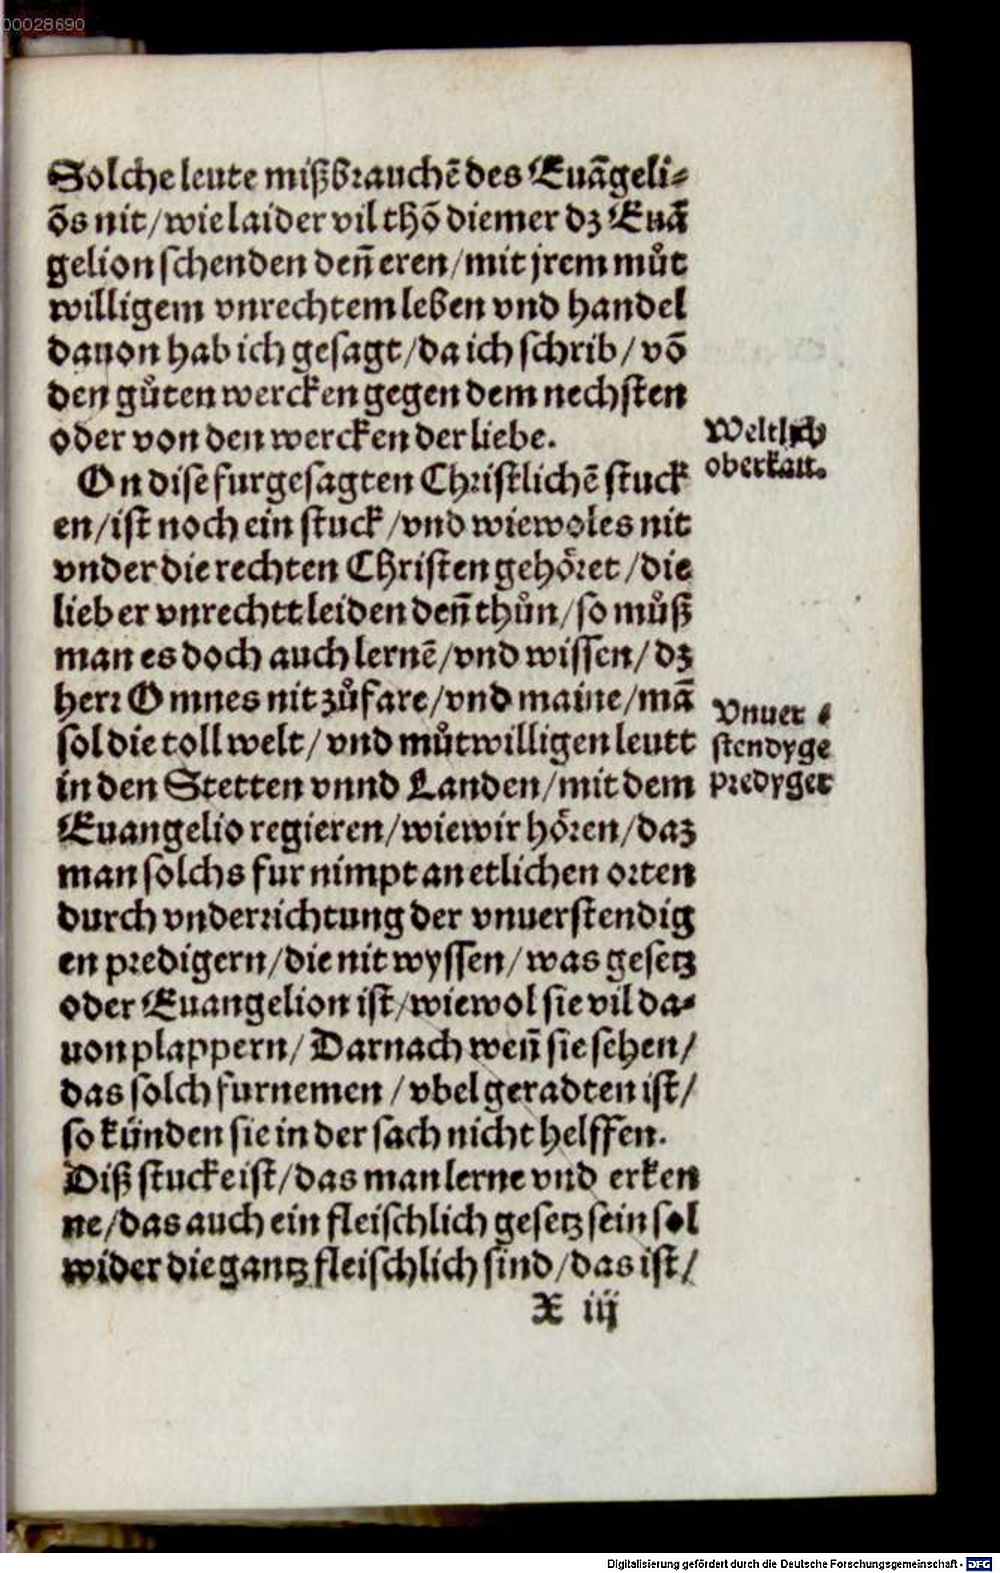 00028690
Solche leute mißbrauchē des Euāgeli-
ōs nit/wie laider vil thō die mer dz Euā
gelion schenden deñ eren/mit jrem můt
willigem vnrechtem leben vnd handel
dauon hab ich gesagt/da ich schrib/vō
den gůten wercken gegen dem nechsten
oder von den wercken der liebe.
Weltlich
oberkait.
On dise furgesagten Christlichē stuck
en/ist noch ein stuck/vnd wiewol es nit
vnder die rechten Christen gehöret/die
lieber vnrechtt leiden deñ thůn/so můß
man es doch auch lernē/vnd wissen/dz
herr Omnes nit zůfare/vnd maine/mā
sol die toll welt/vnd můtwilligen leutt
in den Stetten vnnd Landen/mit dem
Euangelio regieren/wie wir hören/daz
man solchs fur nimpt an etlichen orten
durch vnderrichtung der vnuerstendig
en predigern/die nit wyssen/was gesetz
oder Euangelion ist/wiewol sie vil da-
uon plappern/Darnach weñ sie sehen/
das solch furnemen/vbel geradten ist/
so künden sie in der sach nicht helffen.
Vnuer-
stendyge
predyger
Diß stucke ist/das man lerne vnd erken
ne/das auch ein fleischlich gesetz sein sol
wider die gantz fleischlich sind/das ist/
X iij
Digitalisierung gefördert durch die Deutsche Forschungsgemeinschaft - DFG